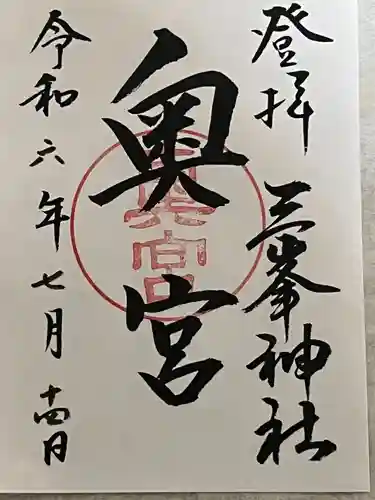 登拝 三峯神社
奥宮
奥宮
令和六年七月十四日